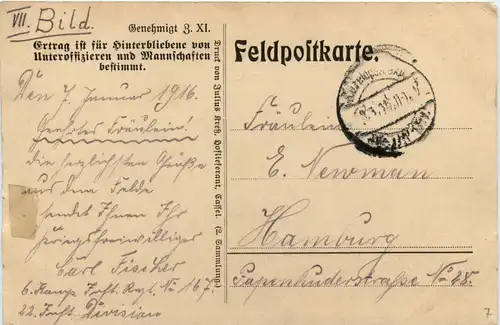 VII. Bild.
Genehmigt Z. XI.
Ertrag ist für Hinterbliebene von
Unteroffizieren und Mannschaften
bestimmt.
Den 7. Januar 1916.
Geehrtes Fräulein!
Die herzlichsten Grüße
aus dem Felde
sendet Ihnen Ihr
Kriegsfreiwilliger
Carl Fischer
6. Komp. Inft. Regt. No 167.
22. Inft. Division
Druck von Julius Kreß, Hoflieferant, Cassel. (2. Sammlung.)
Feldpostkarte.
Fräulein
E. Newman
Hamburg
Papenhuderstraße No 28.
7